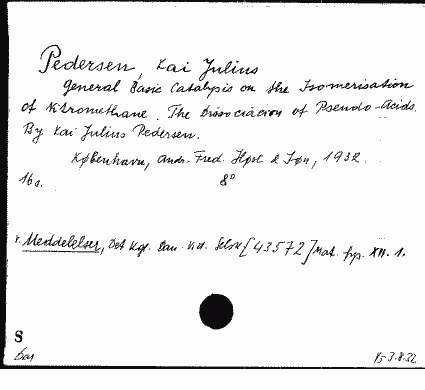 Pedersen, Kai Julius
General Basic Catalysis on the Isomerisation
of Nitromethane. The Dissociation of Pseudo-Acids.
By Kai Julius Pedersen.
København, Andr. Fred. Høst & Søn, 1932.
16 s. 8°
v. Meddelelser, Det Kgl. Dan. Vid. Selsk [43572] Mat. fys. XII. 1.
S
Bar
15-3.8.32